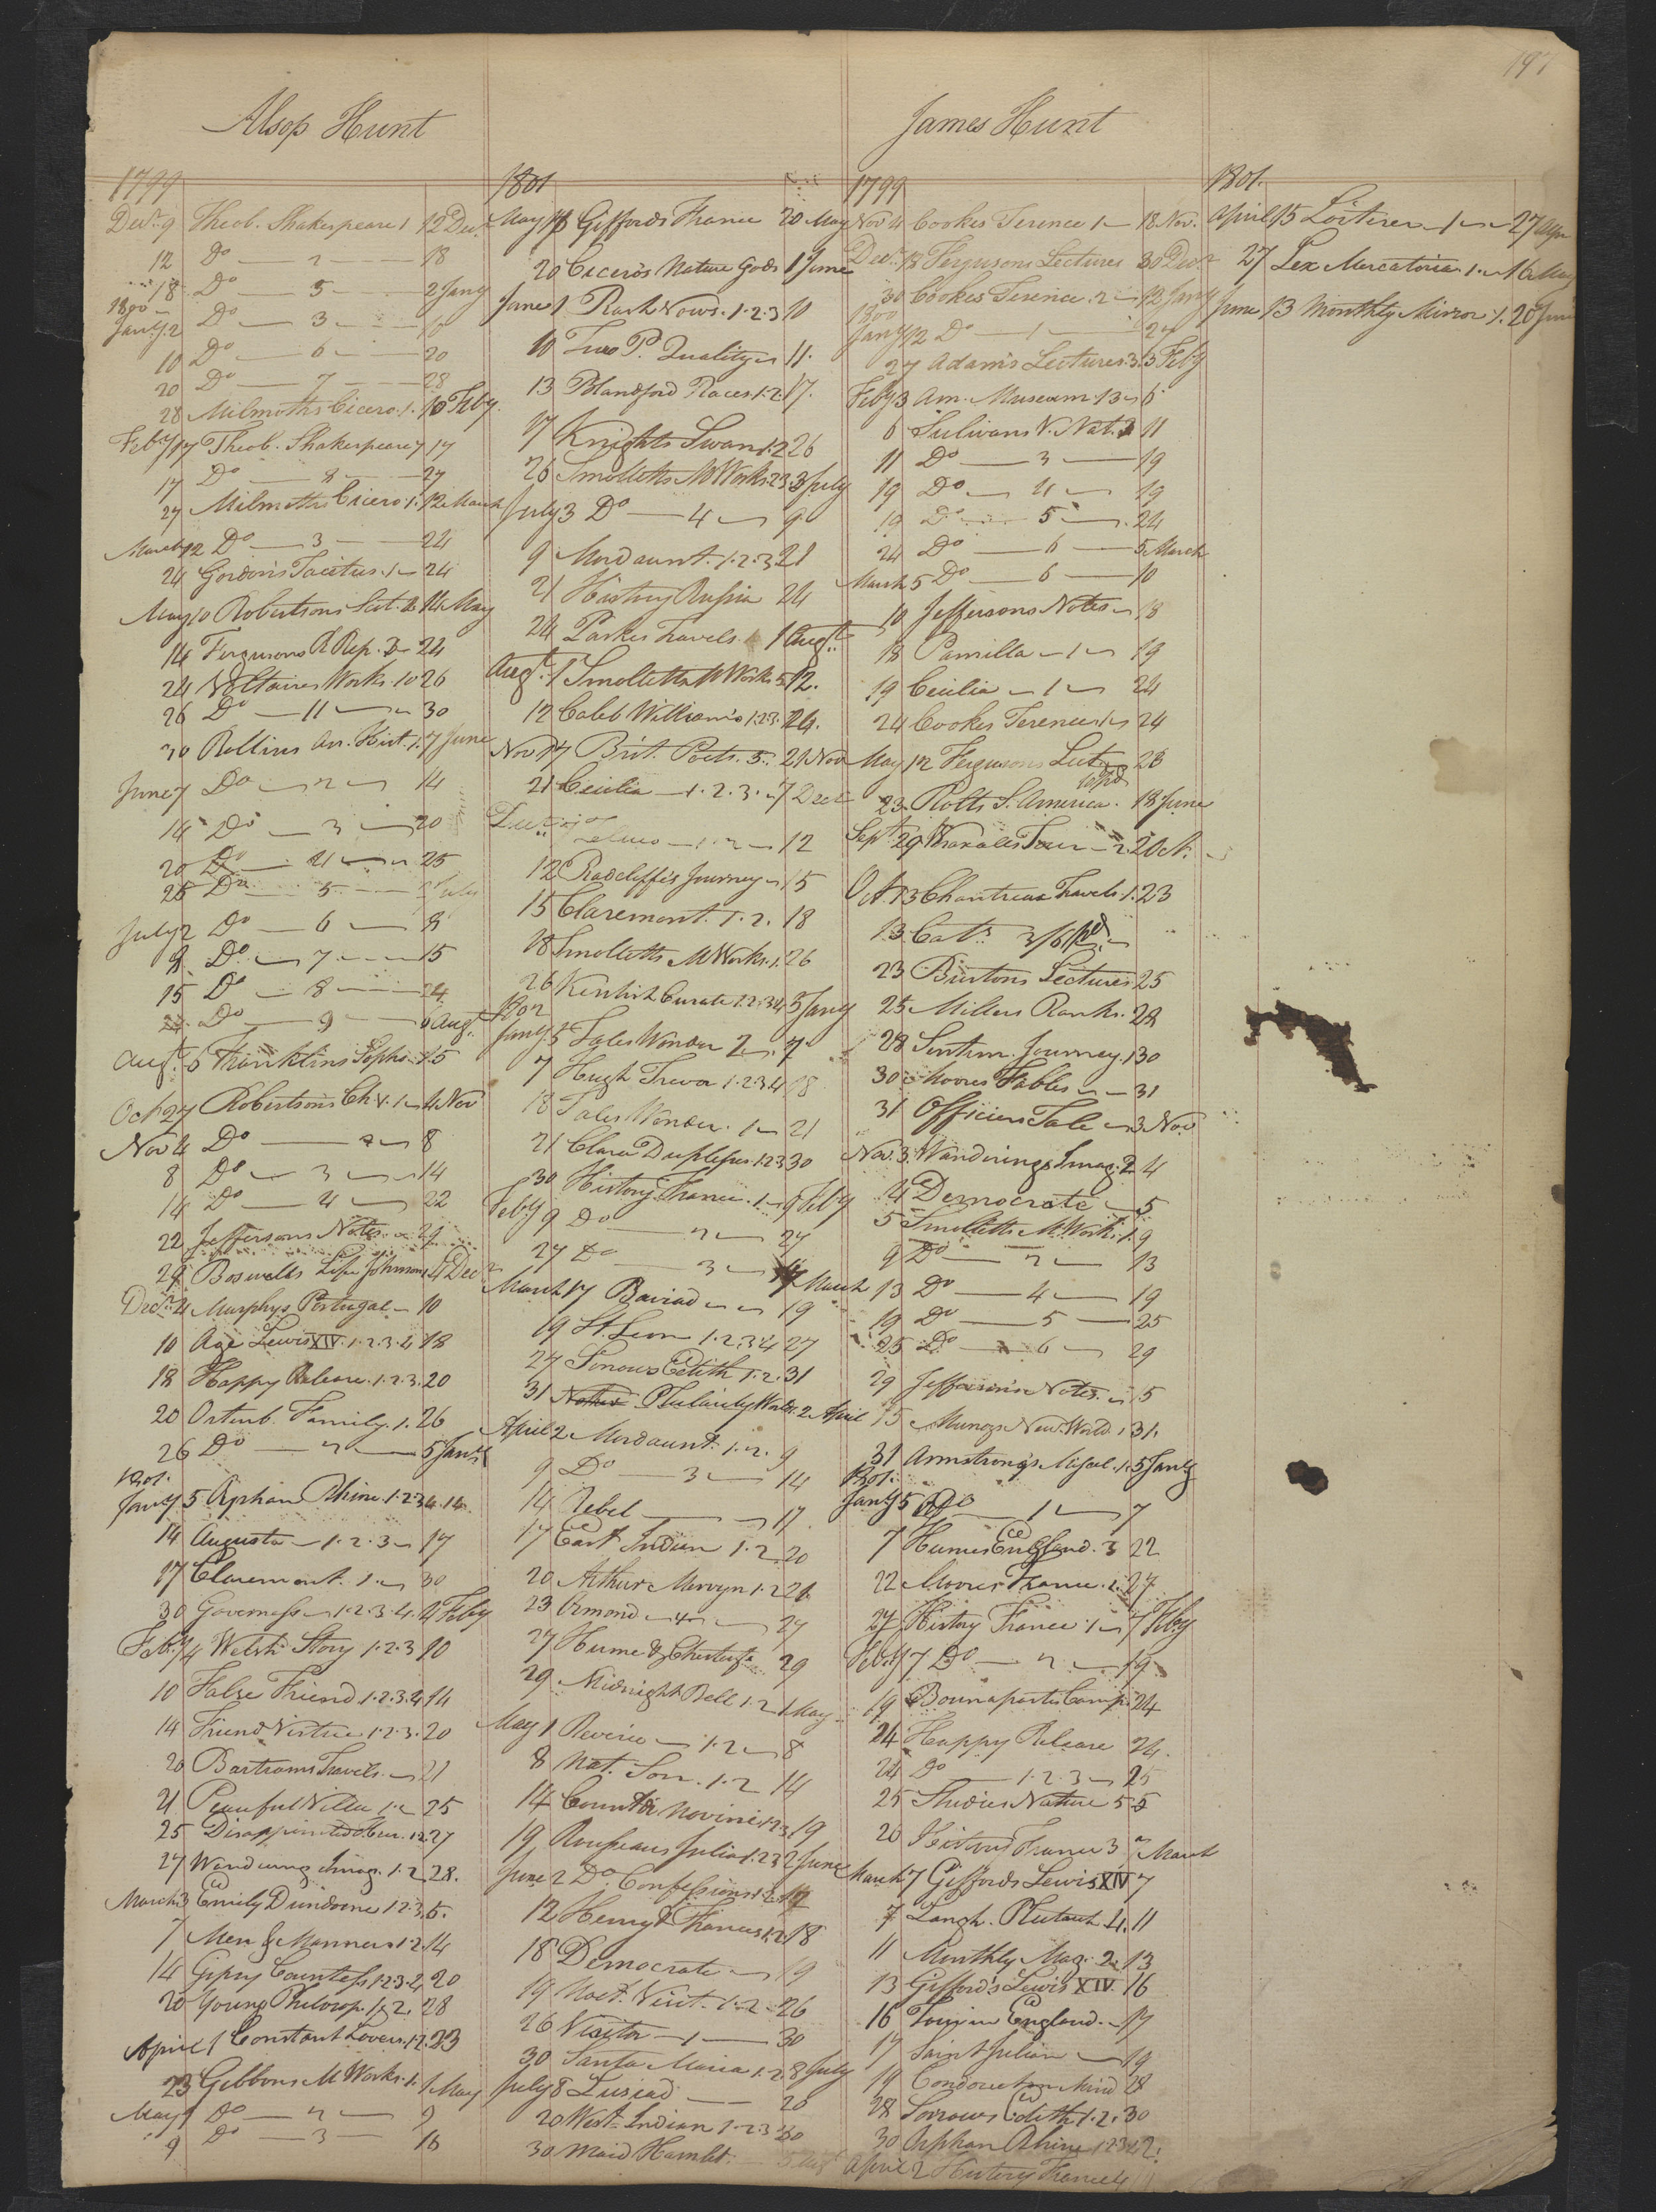 197
Alsop Hunt
1799
Decr. 9 Theob. Shakespeare 1 12 Decr.
12 Do 2 18
18 Do 5 2 Jany
1800
Jany. 2 Do 3 10
10 Do 6 20
20 Do 7 28
28 Milmoths Cicero. 1. 10 Feby.
Feby 10 Theob. Shakespeare 7 17
17 Do 8 27
27 Milmoths Cicero. 1. 12 March
March 12 Do 3 24
24 Gordon's Tacitus. 1 24
May 10 Robertsons Scot. 2 14 May
14 Fergusons R Rep. 3 24
24 Voltaires Works. 10 26
26 Do 11 30
30 Rollins An. Hist. 1. 7 June
June 7 Do 2 14
14 Do 3 20
20 Do 4 25
25 Do 5 2 July
July 2 Do 6 9
9 Do 7 15
15 Do 8 24
24 Do 9 6 Augt.
Augt. 6 Franklins Sophs. 15
Oct 27 Robertsons Ch. V. 1 4 Nov
Nov 4 Do 2 8
8 Do 3 14
14 Do 4 22
22 Jeffersons Notes 29
29 Boswells Life Johnson 4 Decr
Decr. 4 Murphys Portugal 10
10 Age Lewis XIV. 1.2.3.4 18
18 Happy Release. 1.2.3. 20
20 Ortenb. Family. 1. 26
26 Do 2 5 Jany
1801.
Jany 5 Orphan Rhine. 1.2.3.4. 14
14 Augusta 1.2.3 17
17 Claremont. 1. 30
30 Governess 1.2.3.4. 4 Feby
Feby 4 Welsh Story 1.2.3 10
10 False Friend. 1.2.3.4 14
14 Friend Virtue 1.2.3. 20
20 Bartrams Travels. 21
21 Peaceful Villa 1.2 25
25 Disappointed Heir. 1.2. 27
27 Wanderings Imag. 1.2 28.
March 3 Emily Dundorne 1.2.3. 5.
7 Men & Manners 1.2. 14
14 Gipsy Countess 1.2.3.4 20
20 Young Philosop. 1.2. 28
April 1 Constant Lover. 1.2. 23
23 Gibbons M Works. 1. 1 May
May 1 Do 2 9
9 Do 3 16
1801
May 16 Giffords France 20 May
20 Ciceros Nature Gods 1 June
June 1 Rash Vows. 1.2.3 10
10 Two P. Quality 11.
13 Blandford Races 1.2. 17.
17 Knights Swan 1.2 26
26 Smolletts M Works 2.3 3 July
July 3 Do 4 9
9 Mordaunt. 1.2.3 21
21 History Russia 24
24 Parkes Travels. 1 Augt.
Augt. 1 Smolletts M Works 5 12.
12 Caleb Williams 1.2.3. 24.
Nov 17 Brit. Poets. 5. 21 Nov
21 Cecilia 1.2.3. 7 Decr
1.2 12
12 Radcliffes Journey 15
15 Claremont. 1.2. 18
18 Smolletts M Works. 1. 26
26 Kentish Curate 1.2.3.4 5 Jany
1802
Jany. 5 Tales Wonder 2. 7
7 Hugh Trevor 1.2.3.4 18
18 Tales Wonder. 1 21
21 Clara Duplessis 1.2.3 30
30 History France. 1 9 Feby
Feby 9 Do 2 27
27 Do 3 17 March
March 17 Baviad 19
19 St. Leon 1.2.3.4 27
27 Sorrows Edith 1.2. 31
31 Plurality Worlds. 2 April
April 2 Mordaunt. 1.2. 9
9 Do 3 14
14 Rebel 17
17 East Indian 1.2 20
20 Arthur Mervyn 1.2 21.
23 Ormond 27
27 Hume & Chesterf. 29
29 Midnight Bell 1.2 1 May
May 1 Reveries 1.2 8
8 Nat. Son. 1.2 14
14 Count di Novini 1.2.3. 19
19 Rousseaus Julia 1.2.3 2 June
June 2 Do. Confessions 1.2. 12
12 Henry & Frances 1.2. 18
18 Democrate 19
19 Noct. Visit. 1.2 26
26 Visitor 1 30
30 Santa Maria 1.2 8 July
July 8 Lusiad 20
20 West Indian 1.2.3 30
30 Maid Hamlet.
James Hunt
1799
Nov 4 Cookes Terence 1 18 Nov.
Decr. 18 Fergusons Lectures 30 Decr
30 Cookes Terence. 2 12 Jany
1800
Jany 12 Do 1 27
27 Adams Lectures 3. 3 Feby
Feby 3 Am. Museum 13 6
6 Sulivans V. Nat. 2 11
11 Do 3 19
19 Do 4 19
19 Do 5 24
24 Do 6 5 March
March 5 Do 6 10
10 Jeffersons Notes 18
18 Pamilla 1 19
19 Cecilia 1 24
24 Cookes Terence 1 24
May 12 Fergusons Lect 23
23 Rolts S. America. 18 June
Sept 29 Wraxalls Tour 2 2 Oct.
Oct. 13 Chantreau Travels. 1. 23
13 Cat. 3/6 pd
23 Burtons Lectures 25
25 Millers Ranks. 28
28 Sentim. Journey. 1 30
30 Moores Fables 31
31 Officers Tale 3 Nov
Nov. 3. Wanderings Imag. 2 4
4 Democrate 5
5 Smolletts M. Work. 1. 9
9 Do 2 13
13 Do 4 19
19 Do 5 25
25 Do 6 29
29 Jeffersons Notes. 15
15 Munoz New World. 1 31.
31 Armstrongs Miscel. 1. 5 Jany
1801.
Jany 5 Do 1 7
7 Humes England. 3 22
22 Moores France. 2. 27
27 History France 1 7 Feby
Feby 7 Do 2 19.
19 Bounapartes Camp. 24
24 Happy Release 24.
24 Do 1.2.3 25
25 Studies Nature 5
History France 3 7 March
March 7 Giffords Lewis XIV 7
7 Langh. Plutarch 4. 11
11 Monthly Mag. 2. 13
13 Gifford's Lewis XIV. 16
16 Tour in England. 17
17 Saint Julian 19
19 Conduct Mind 28
28 Sorrows Edith 1.2. 30
30 Orphan Rhine 1.2.3.4 2.
April 2 History France 4
1801.
April 15 Loiterer 1 27 Apr
27 Lex Mercatoria. 1. 16 May
June 13 Monthly Mirror. 1. 20 June